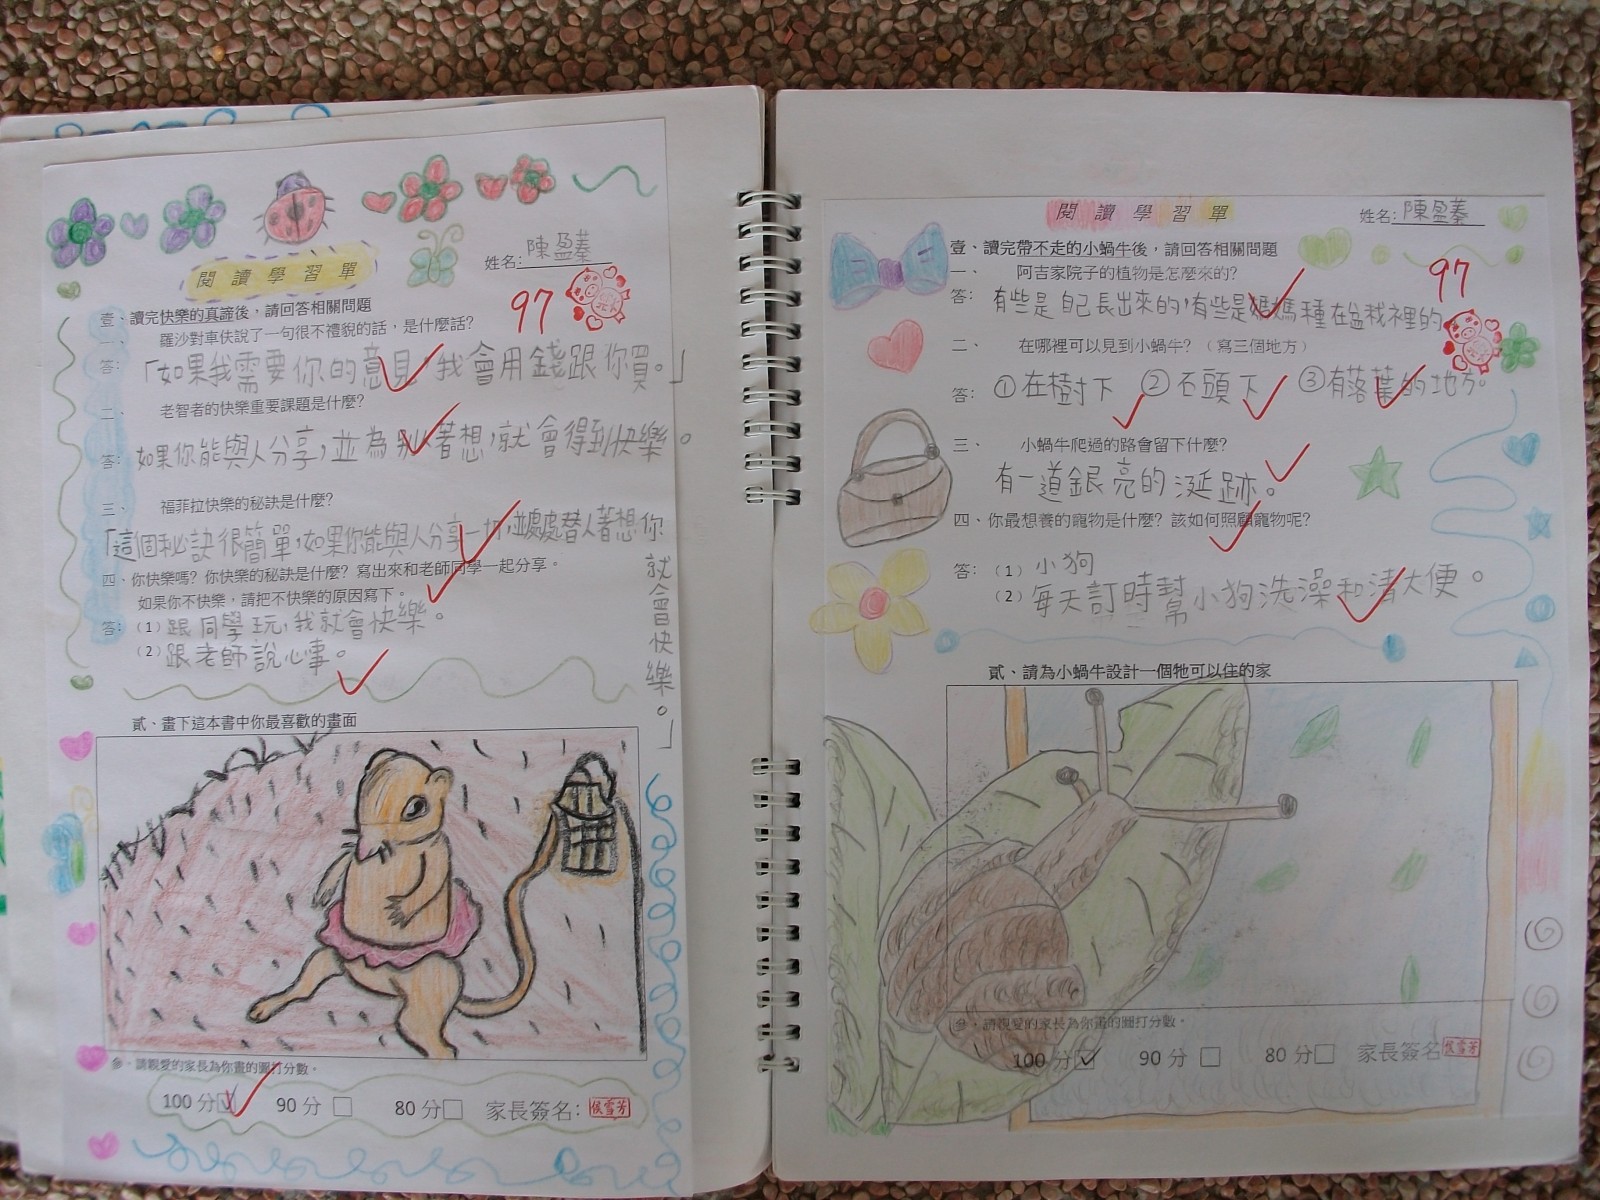 閱讀學習單
姓名:陳盈蓁
97
壹、讀完快樂的真諦後，請回答相關問題
一、 羅沙對車伕說了一句很不禮貌的話，是什麼話?
答:「如果我需要你的意見，我會用錢跟你買。」
二、 老智者的快樂重要課題是什麼?
答: 如果你能與人分享，並為別人著想，就會得到快樂。
三、 福菲拉快樂的秘訣是什麼?
「這個秘訣很簡單，如果你能與人分享一切，並處處替人著想你
就會快樂。」
四、你快樂嗎? 你快樂的秘訣是什麼? 寫出來和老師同學一起分享。
如果你不快樂，請把不快樂的原因寫下。
答: (1) 跟同學玩，我就會快樂。
(2) 跟老師說心事。
貳、畫下這本書中你最喜歡的畫面
參、請親愛的家長為你畫的圖打分數。
100 分☑ 90 分□ 80 分□ 家長簽名: 侯雪芳
閱讀學習單
姓名:陳盈蓁
97
壹、讀完帶不走的小蝸牛後，請回答相關問題
一、 阿吉家院子的植物是怎麼來的?
答: 有些是自己長出來的，有些是媽媽種在盆栽裡的
二、 在哪裡可以見到小蝸牛? (寫三個地方)
答: ①在樹下 ②石頭下 ③有落葉的地方。
三、 小蝸牛爬過的路會留下什麼?
有一道銀亮的涎跡。
四、你最想養的寵物是什麼? 該如何照顧寵物呢?
答: (1) 小狗
(2) 每天訂時幫小狗洗澡和清大便。
貳、請為小蝸牛設計一個牠可以住的家
參、請親愛的家長為你畫的圖打分數。
100 分☑ 90 分□ 80 分□ 家長簽名 侯雪芳